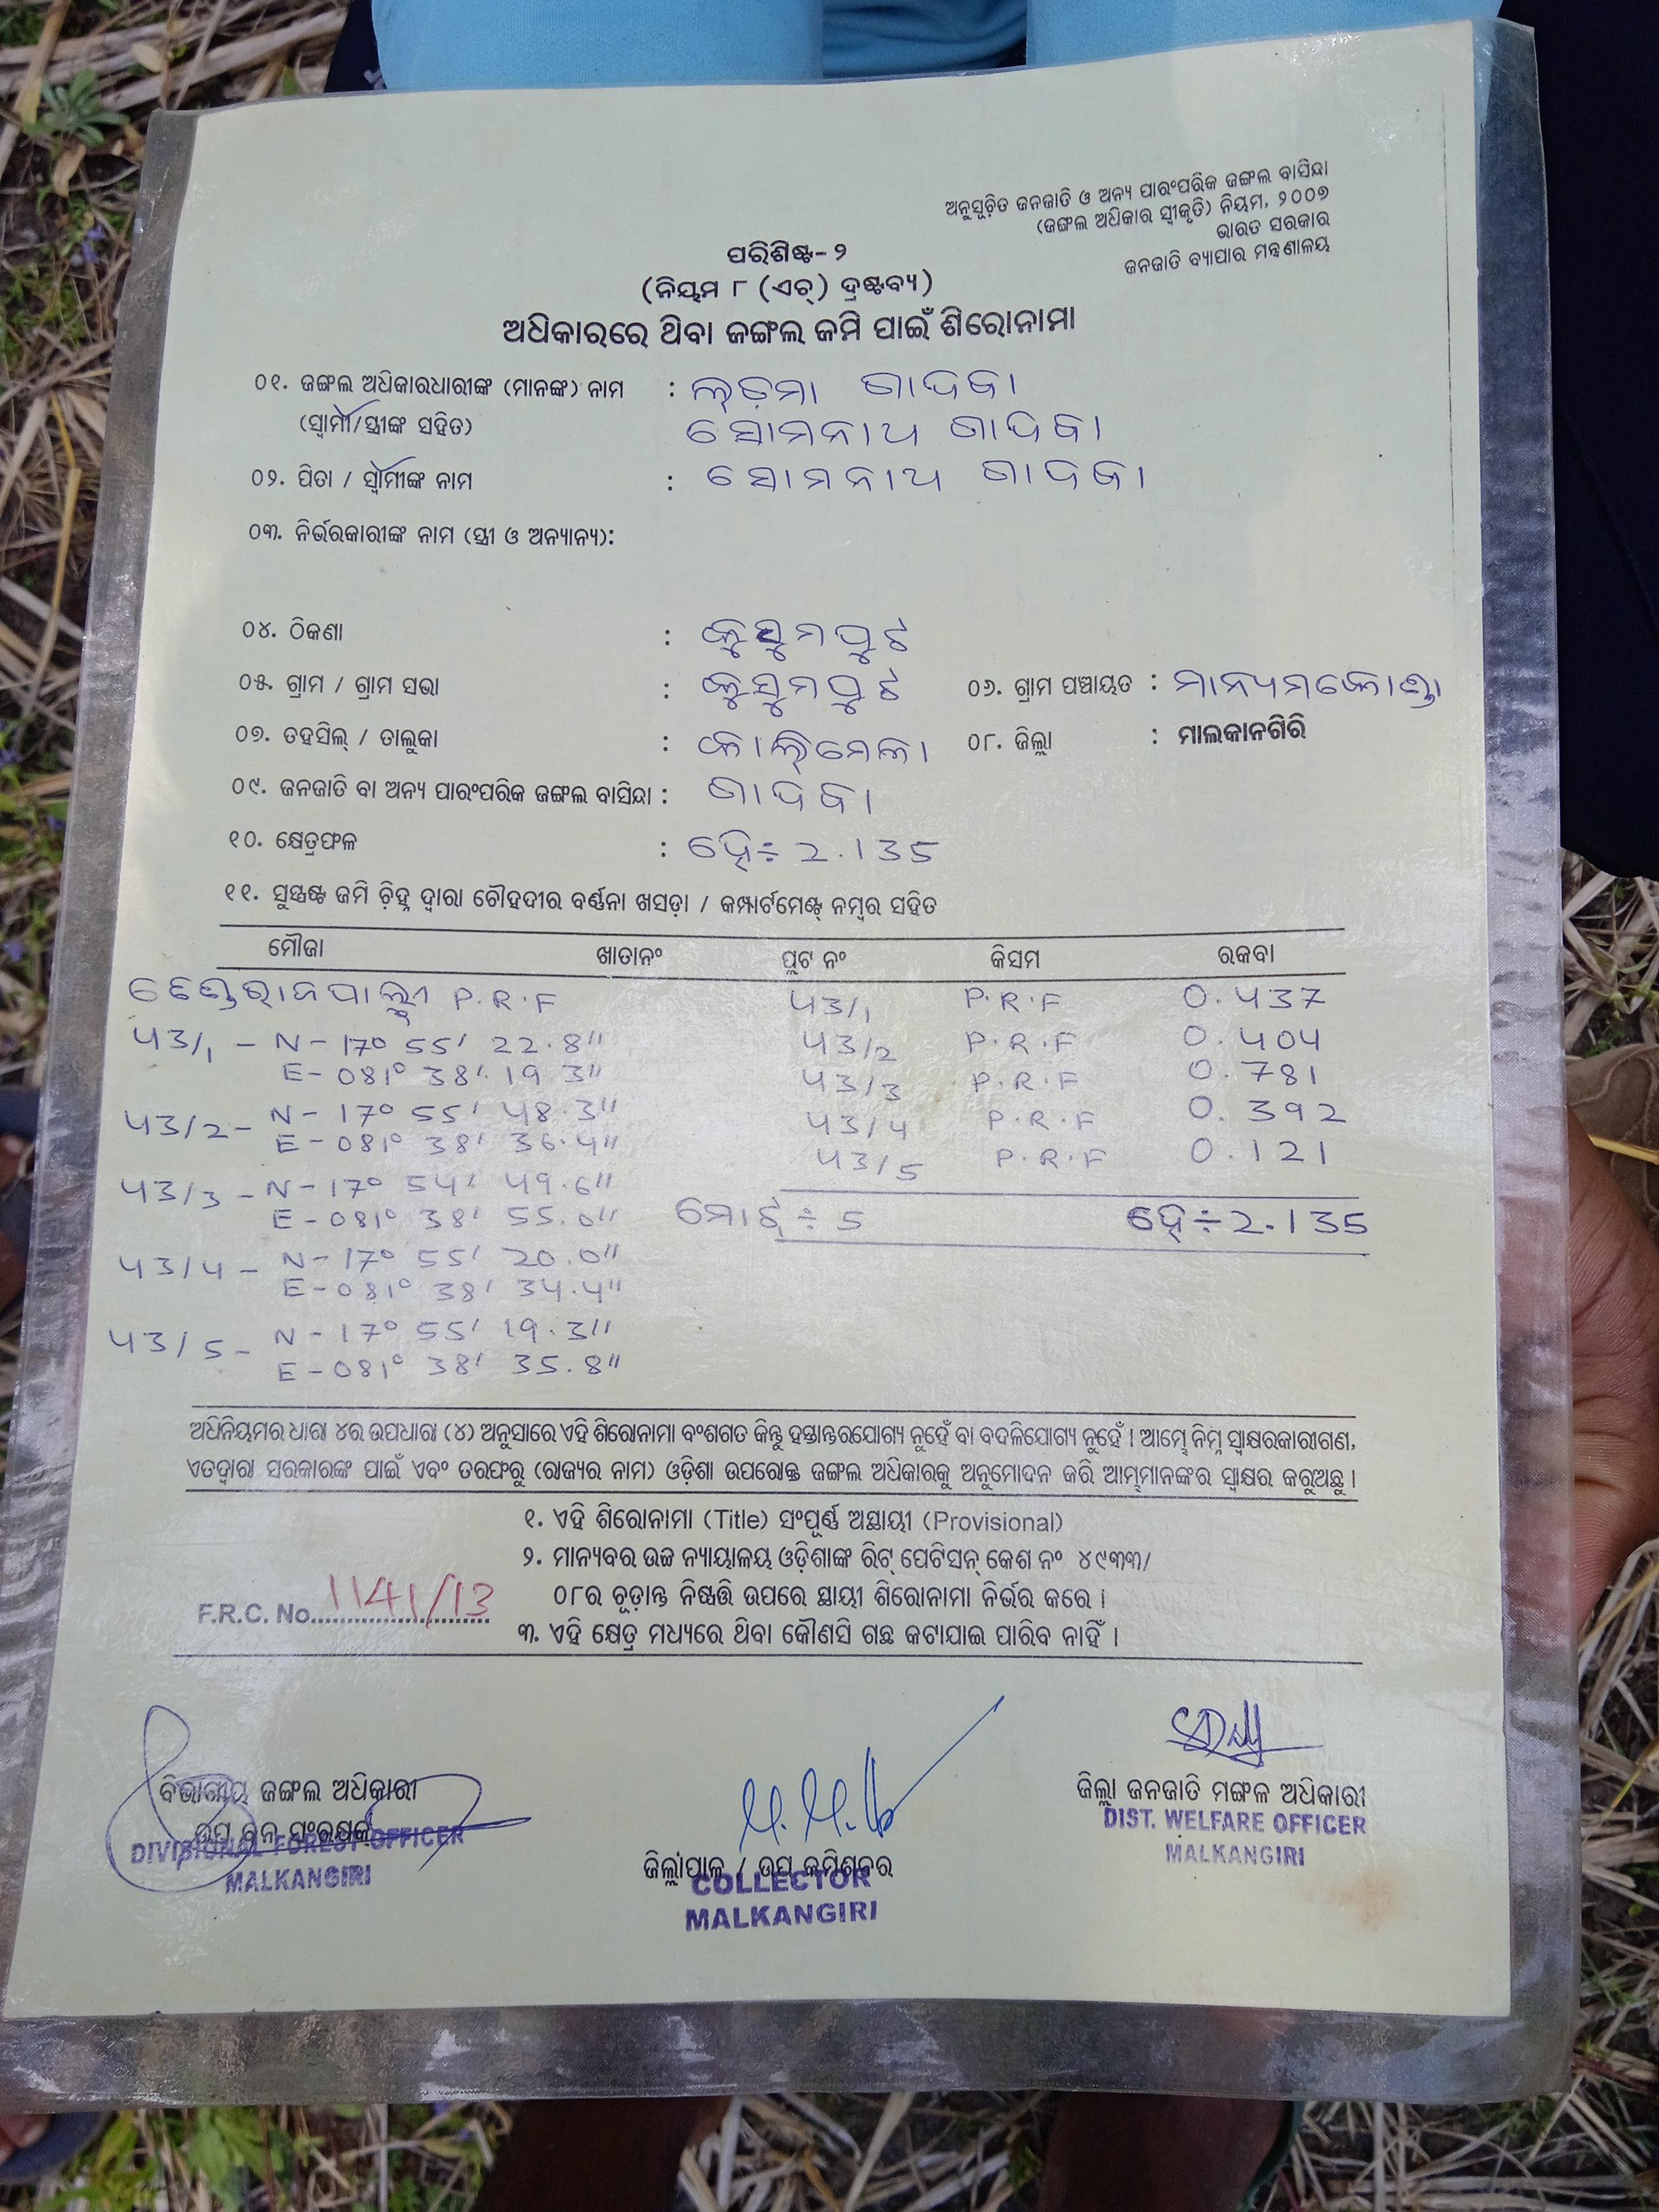 ଅନୁସୂଚିତ ଜନଜାତି ଓ ଅନ୍ୟ ପାରଂପରିକ ଜଙ୍ଗଲ ବାସିନ୍ଦା
(ଜଙ୍ଗଲ ଅଧିକାର ସ୍ୱୀକୃତି) ନିୟମ, ୨୦୦୭
ଭାରତ ସରକାର
ଜନଜାତି ବ୍ୟାପାର ମନ୍ତ୍ରଣାଳୟ
ପରିଶିଷ୍ଟ-୨
(ନିୟମ ୮ (ଏଚ୍) ଦ୍ରଷ୍ଟବ୍ୟ)
ଅଧିକାରରେ ଥିବା ଜଙ୍ଗଲ ଜମି ପାଇଁ ଶିରୋନାମା
୦୧. ଜଙ୍ଗଲ ଅଧିକାରଧାରୀଙ୍କ (ମାନଙ୍କ) ନାମ : ଲଡମା ଗାଦବା
(ସ୍ୱାମୀ/ସ୍ତ୍ରୀଙ୍କ ସହିତ) ସୋମନାଥ ଗାଦବା
୦୨. ପିତା / ସ୍ୱାମୀଙ୍କ ନାମ : ସୋମନାଥ ଗାଦବା
୦୩. ନିର୍ଭରକାରୀଙ୍କ ନାମ (ସ୍ତ୍ରୀ ଓ ଅନ୍ୟାନ୍ୟ):
୦୪. ଠିକଣା : କୁସୁମପୁଟ
୦୫. ଗ୍ରାମ / ଗ୍ରାମ ସଭା : କୁସୁମପୁଟ ୦୬. ଗ୍ରାମ ପଞ୍ଚାୟତ : ମାନ୍ୟମକୋଣ୍ଡା
୦୭. ତହସିଲ୍ / ତାଲୁକା : କାଲିମେଳା ୦୮. ଜିଲ୍ଲା : ମାଲକାନଗିରି
୦୯. ଜନଜାତି ବା ଅନ୍ୟ ପାରଂପରିକ ଜଙ୍ଗଲ ବାସିନ୍ଦା : ଗାଦବା
୧୦. କ୍ଷେତ୍ରଫଳ : ହେ÷ 2.135
୧୧. ସୁସ୍ପଷ୍ଟ ଜମି ଚିହ୍ନ ଦ୍ୱାରା ଚୌହଦୀର ବର୍ଣ୍ଣନା ଖସଡ଼ା / କମ୍ପାର୍ଟମେଣ୍ଟ ନମ୍ବର ସହିତ
ମୌଜା ଖାତାନଂ ପ୍ଲଟ ନଂ କିସମ ରକବା
P.R.F 43/1 P.R.F 0.437
43/1 - N-17° 55' 22.8" 43/2 P.R.F 0.404
E-081° 38' 19.3" 43/3 P.R.F 0.781
43/2 - N-17° 55' 48.3" 43/4 P.R.F 0.392
E-081° 38' 36.4" 43/5 P.R.F 0.121
43/3 - N-17° 54' 49.6"
E-081° 38' 55.0" ମୋଟ୍ ÷ 5 ହେ÷2.135
43/4 - N-17° 55' 20.0"
E-081° 38' 34.4"
43/5 - N-17° 55' 19.3"
E-081° 38' 35.8"
ଅଧିନିୟମର ଧାରା ୪ର ଉପଧାରା (୪) ଅନୁସାରେ ଏହି ଶିରୋନାମା ବଂଶଗତ କିନ୍ତୁ ହସ୍ତାନ୍ତରଯୋଗ୍ୟ ନୁହେଁ ବା ବଦଳିଯୋଗ୍ୟ ନୁହେଁ । ଆମ୍ଭେ ନିମ୍ନ ସ୍ୱାକ୍ଷରକାରୀଗଣ,
ଏତଦ୍ୱାରା ସରକାରଙ୍କ ପାଇଁ ଏବଂ ତରଫରୁ (ରାଜ୍ୟର ନାମ) ଓଡ଼ିଶା ଉପରୋକ୍ତ ଜଙ୍ଗଲ ଅଧିକାରକୁ ଅନୁମୋଦନ କରି ଆମ୍ଭମାନଙ୍କର ସ୍ୱାକ୍ଷର କରୁଅଛୁ ।
୧. ଏହି ଶିରୋନାମା (Title) ସଂପୂର୍ଣ୍ଣ ଅସ୍ଥାୟୀ (Provisional)
୨. ମାନ୍ୟବର ଉଚ୍ଚ ନ୍ୟାୟାଳୟ ଓଡ଼ିଶାଙ୍କ ରିଟ୍ ପେଟିସନ୍ କେଶ ନଂ ୪୯୩୩/
୦୮ର ଚୂଡ଼ାନ୍ତ ନିଷ୍ପତ୍ତି ଉପରେ ସ୍ଥାୟୀ ଶିରୋନାମା ନିର୍ଭର କରେ ।
F.R.C. No. 1141/13
୩. ଏହି କ୍ଷେତ୍ର ମଧ୍ୟରେ ଥିବା କୌଣସି ଗଛ କଟାଯାଇ ପାରିବ ନାହିଁ ।
ବିଭାଗୀୟ ଜଙ୍ଗଲ ଅଧିକାରୀ
ଉପ ବନ ସଂରକ୍ଷକ
DIVISIONAL FOREST OFFICER
MALKANGIRI
ଜିଲ୍ଲାପାଳ / ଉପ କମିଶନର
COLLECTOR
MALKANGIRI
ଜିଲ୍ଲା ଜନଜାତି ମଙ୍ଗଳ ଅଧିକାରୀ
DIST. WELFARE OFFICER
MALKANGIRI